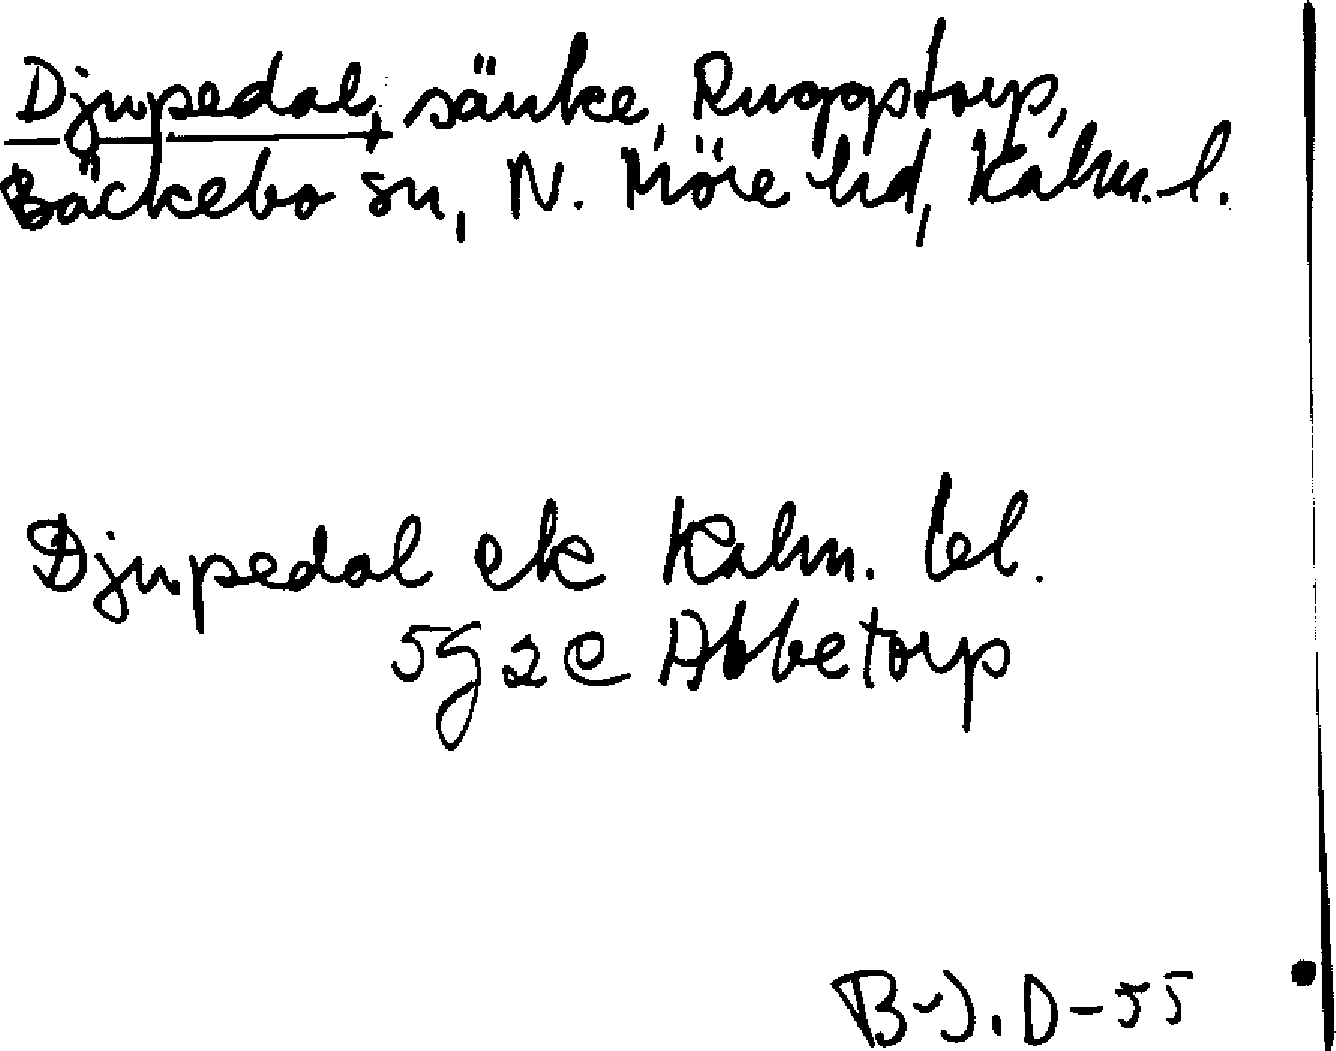 Djupedal, sänke, Ruggstorp,
Bäckebo sn, N. Möre hd, Kalm. l.
Djupedal ek Kalm. bl.
5g2e Abbetorp
B-J. D-55